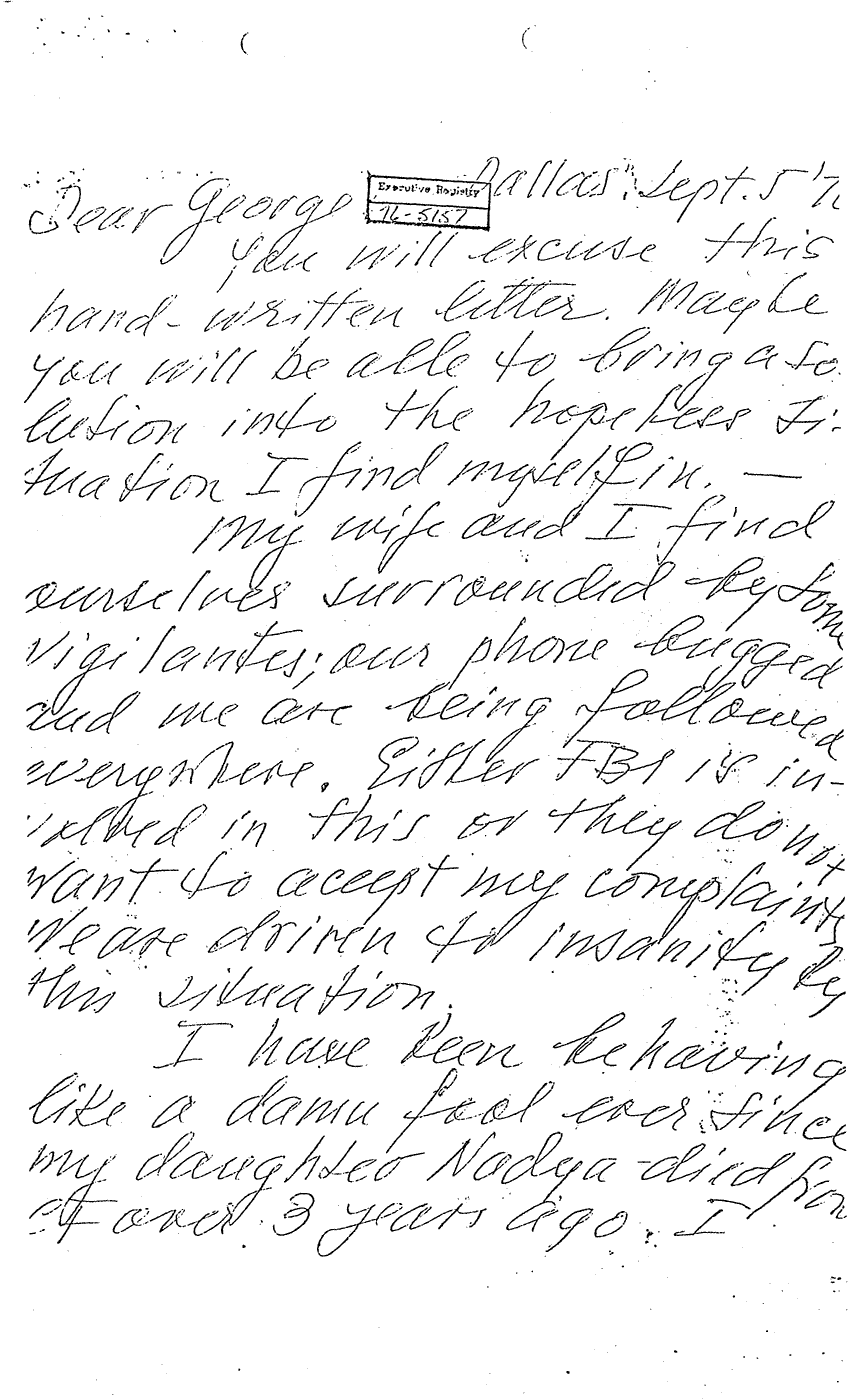 Dallas, Sept. 5 '7
Executive Registry
76-5157
Dear George
You will excuse this
hand-written letter. Maybe
you will be able to bring a so
lution into the hopeless si-
tuation I find myself in. —
My wife and I find
ourselves surrounded by some
vigilantes; our phone bugged
and we are being followed
everywhere. Either FBI is in-
volved in this or they do not
want to accept my complaints
We are driven to insanity by
this situation.
I have been behaving
like a damn fool ever since
my daughter Nadya died from
over 3 years ago. I